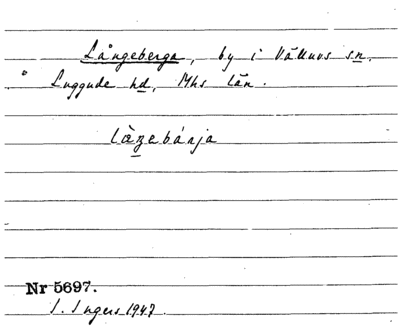 Långeberga, by i Välluvs sn,
Luggude hd, Mhs län.
Nr 5697.
I. Ingers 1947